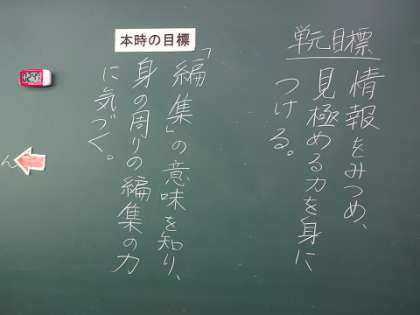 単元目標
情報をみつめ、
見極める力を身に
つける。
本時の目標
「編集」の意味を知り、
身の周りの編集の力
に気づく。
ん